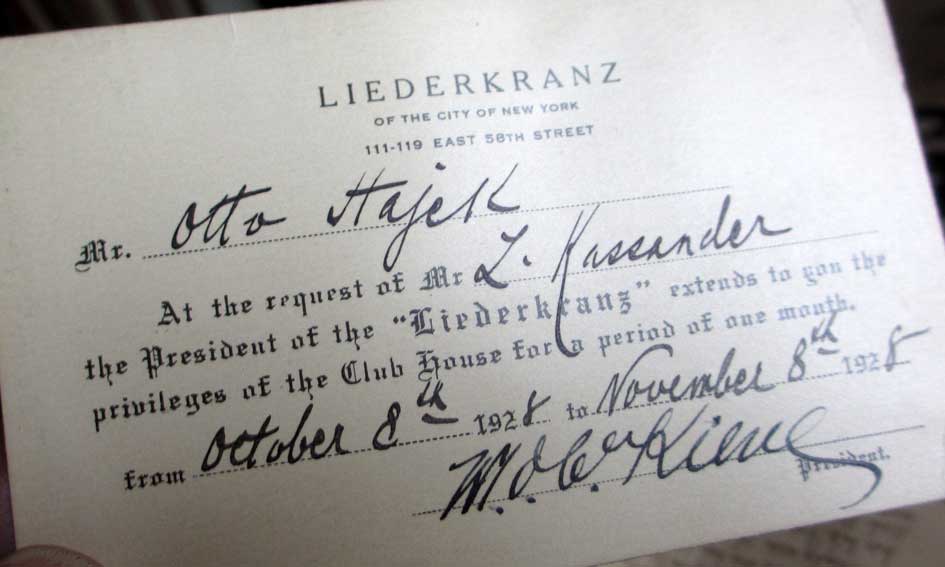 LIEDERKRANZ
OF THE CITY OF NEW YORK
111-119 EAST 58TH STREET
Mr. Otto Hajek
At the request of Mr L. Kassander
the President of the "Liederkranz" extends to you the
privileges of the Club House for a period of one month.
from October 8th 1928 to November 8th 1928
President.